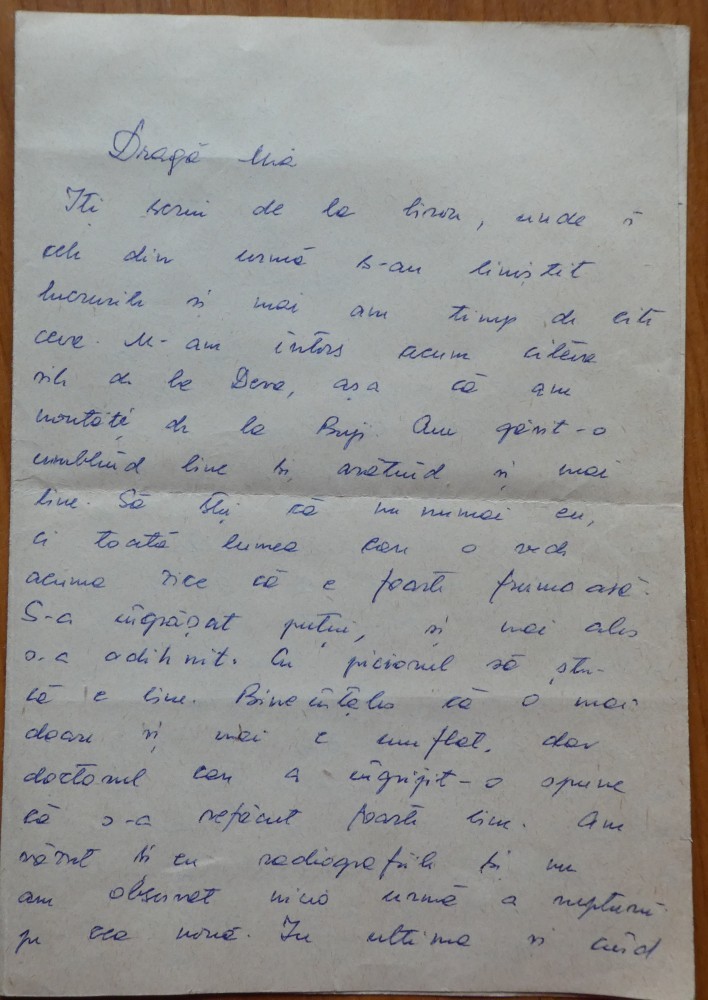 Dragă Mia
Iți scriu de la birou, unde în
cele din urmă s-au liniștit
lucrurile și mai am timp de cite
ceva. M-am întors acum citêva
zile de la Deva, așa că am
noutăți de la Puji. Am găsit-o
umblînd bine și arătînd și mai
bine. Să știi că nu numai eu,
ci toată lumea care o vede
acuma zice că e foarte frumoasă.
S-a îngrășat puțin, și mai ales
s-a odihnit. Cu piciorul să știi
că e bine. Bineînțeles că o mai
doare și mai e umflat, dar
doctorul care a îngrijit-o spune
că s-a refăcut foarte bine. Am
văzut și eu radiografiile și nu
am observat nicio urmă a rupturii
pe cea nouă. In ultima zi cînd